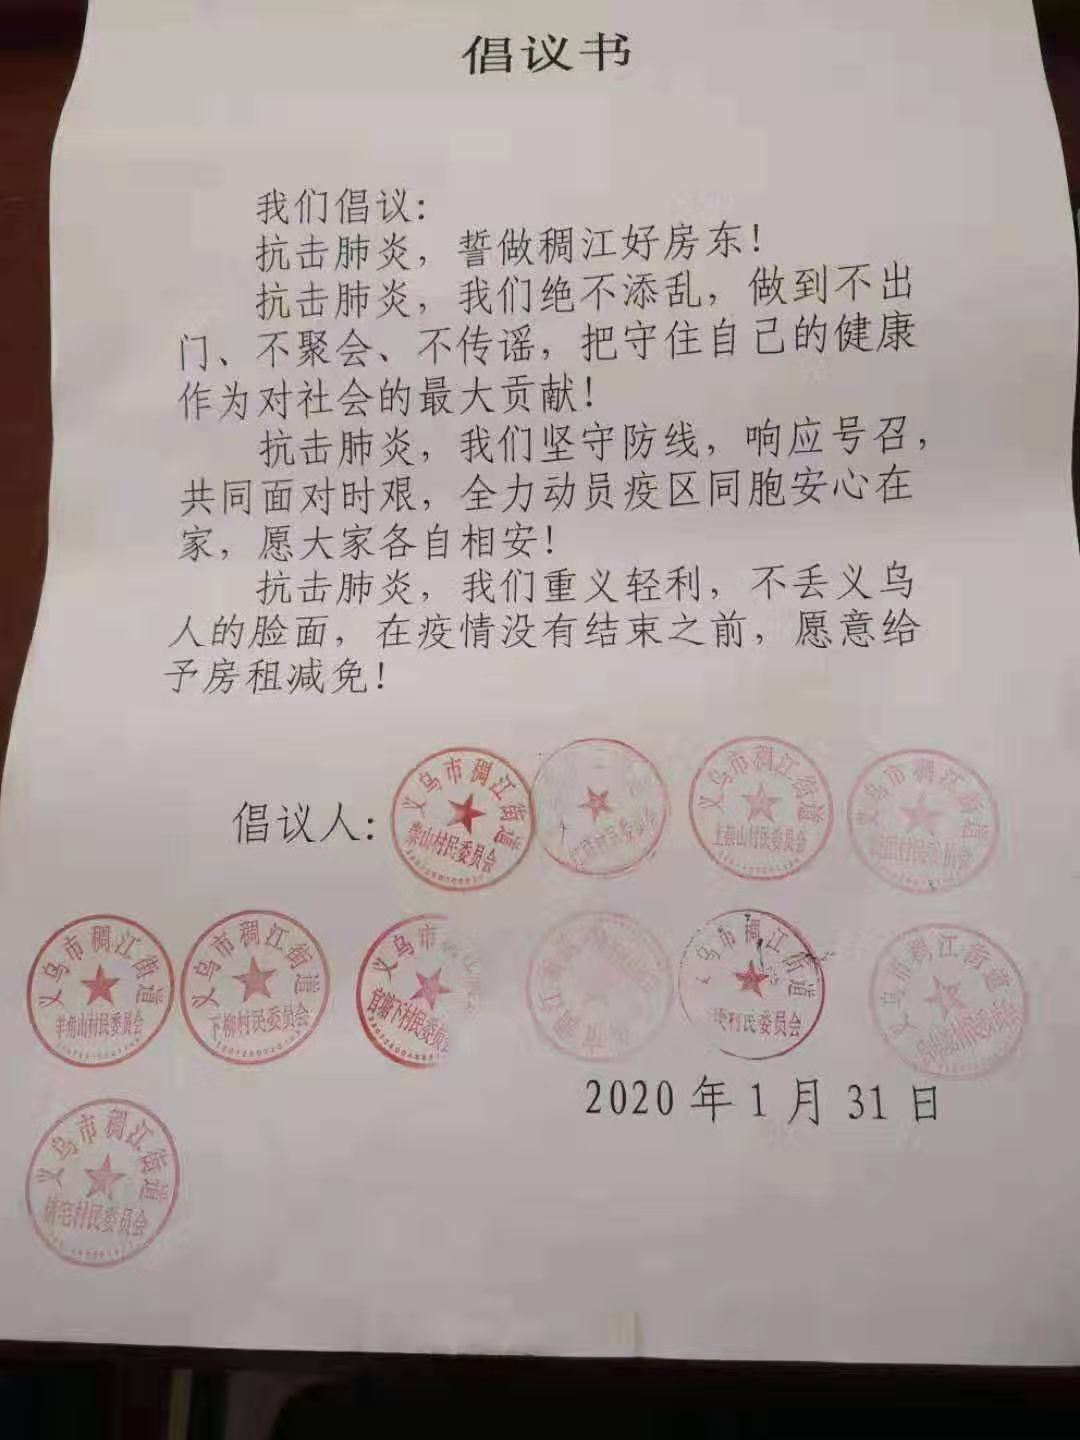 倡议书
我们倡议：
抗击肺炎，誓做稠江好房东！
抗击肺炎，我们绝不添乱，做到不出
门、不聚会、不传谣，把守住自己的健康
作为对社会的最大贡献！
抗击肺炎，我们坚守防线，响应号召，
共同面对时艰，全力动员疫区同胞安心在
家，愿大家各自相安！
抗击肺炎，我们重义轻利，不丢义乌
人的脸面，在疫情没有结束之前，愿意给
予房租减免！
倡议人：
义乌市稠江街道
村民委员会
义乌市稠江街道
上崇山村民委员会
义乌市稠江街道
村民委员会
义乌市稠江街道
羊角山村民委员会
义乌市稠江街道
下柳村民委员会
义乌市稠
官塘下村民委员会
义乌市稠江街道
民委员会
义乌市稠江街道
村民委员会
2020年1月31日
义乌市稠江街道
村民委员会